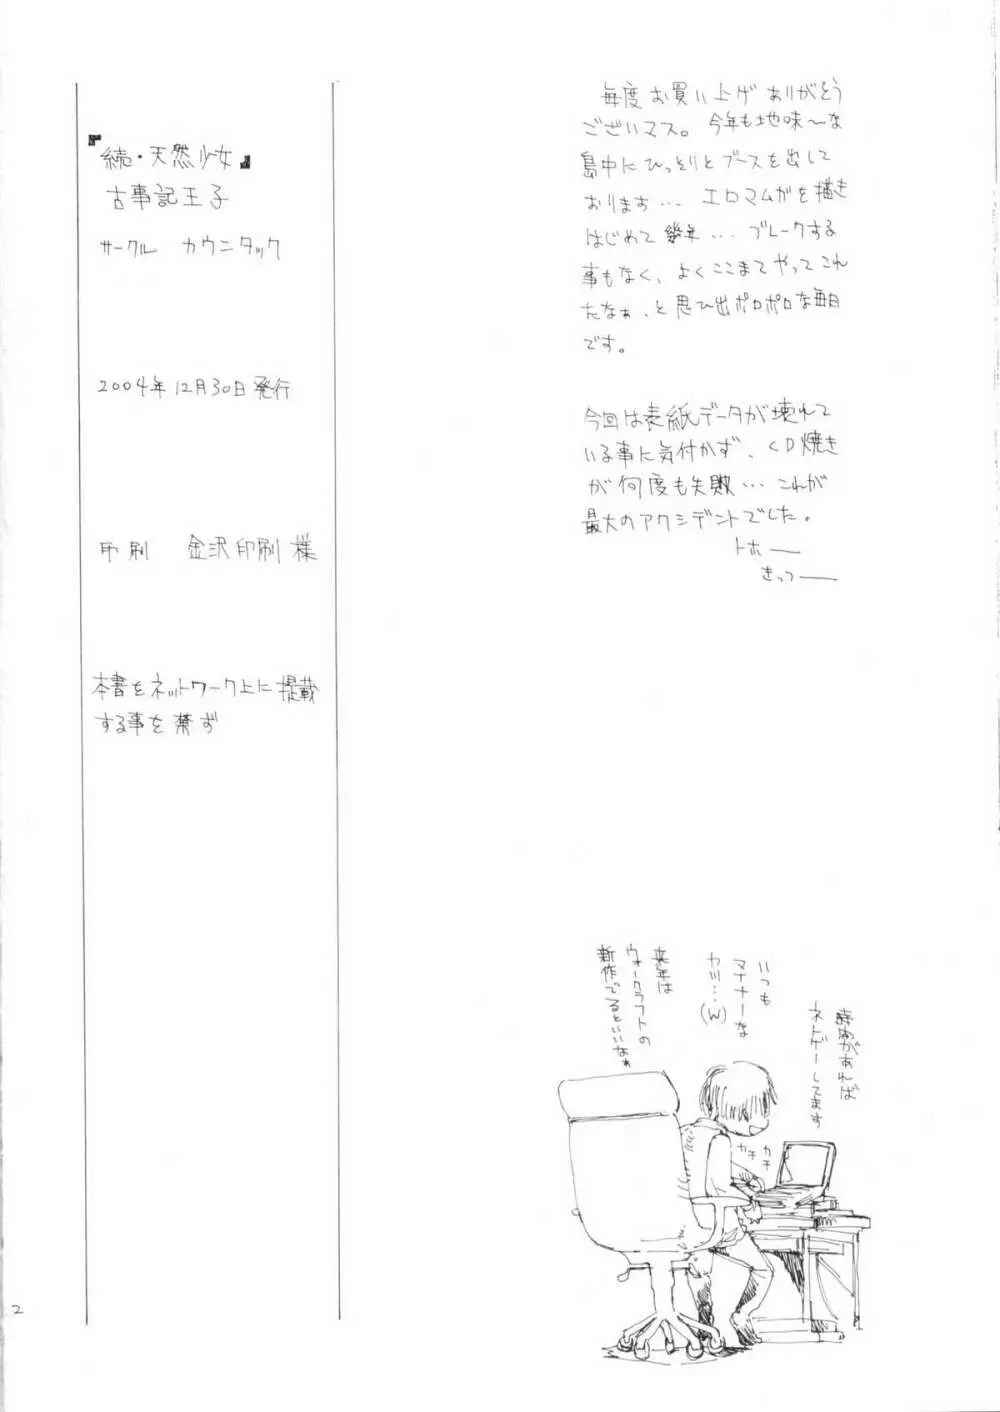 『続・天然少女』
古事記王子
サークル カウニタック
2004年12月30日発行
印刷 金沢印刷様
本書をネットワーク上に掲載
する事を禁ず
毎度お買い上げありがとう
ございマス。今年も地味〜な
島中にひっそりとブースを出して
おります… エロマムガを描き
はじめて幾年… ブレークする
事もなく、よくここまでやってこれ
たなぁ、と思ひ出ポロポロな毎日
です。
今回は表紙データが壊れて
いる事に気付かず、CD焼き
が何度も失敗… これが
最大のアクシデントでした。
トホ──
きっつ──
時間があれば
ネトゲーしてます
いつも
マイナーな
カツ…(W)
来年は
ウォークラフトの
新作でるといいなぁ
カチ
カチ
2